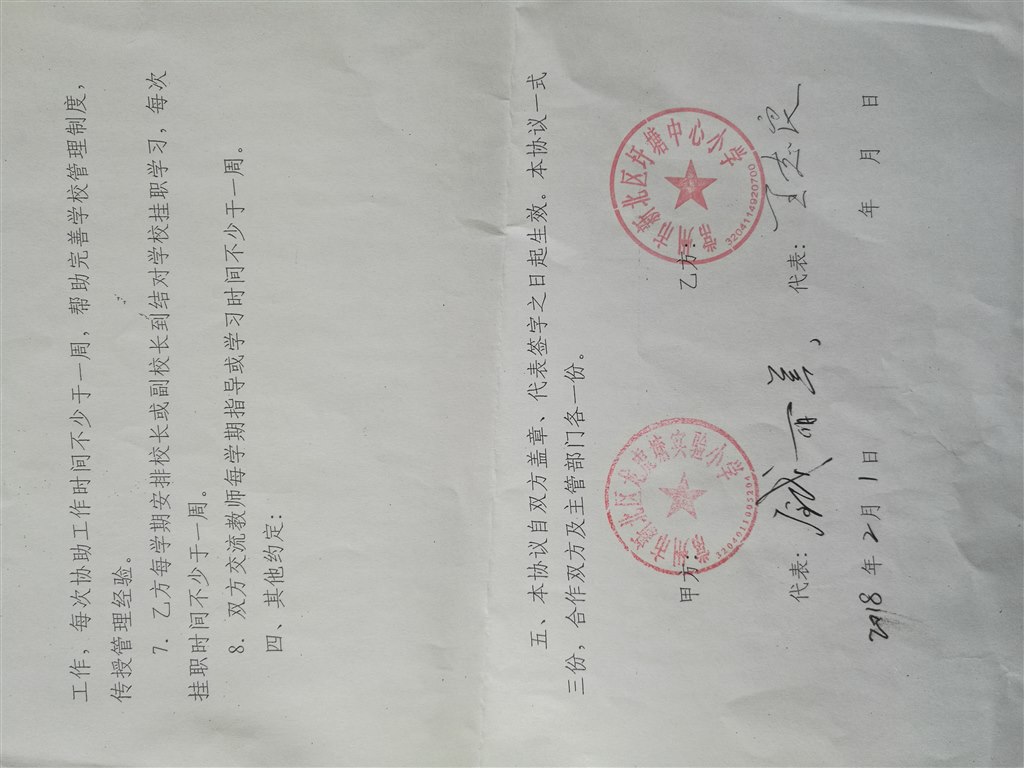 工作，每次协助工作时间不少于一周，帮助完善学校管理制度，
传授管理经验。
7．乙方每学期安排校长或副校长到结对学校挂职学习，每次
挂职时间不少于一周。
8．双方交流教师每学期指导或学习时间不少于一周。
四、其他约定：
五、本协议自双方盖章、代表签字之日起生效。本协议一式
三份，合作双方及主管部门各一份。
甲方：
常州市新北区龙虎塘实验小学
3204110052044
乙方：
常州市新北区圩塘中心小学
3204114920700
代表：
代表：王志良
2018年2月1日
年 月 日